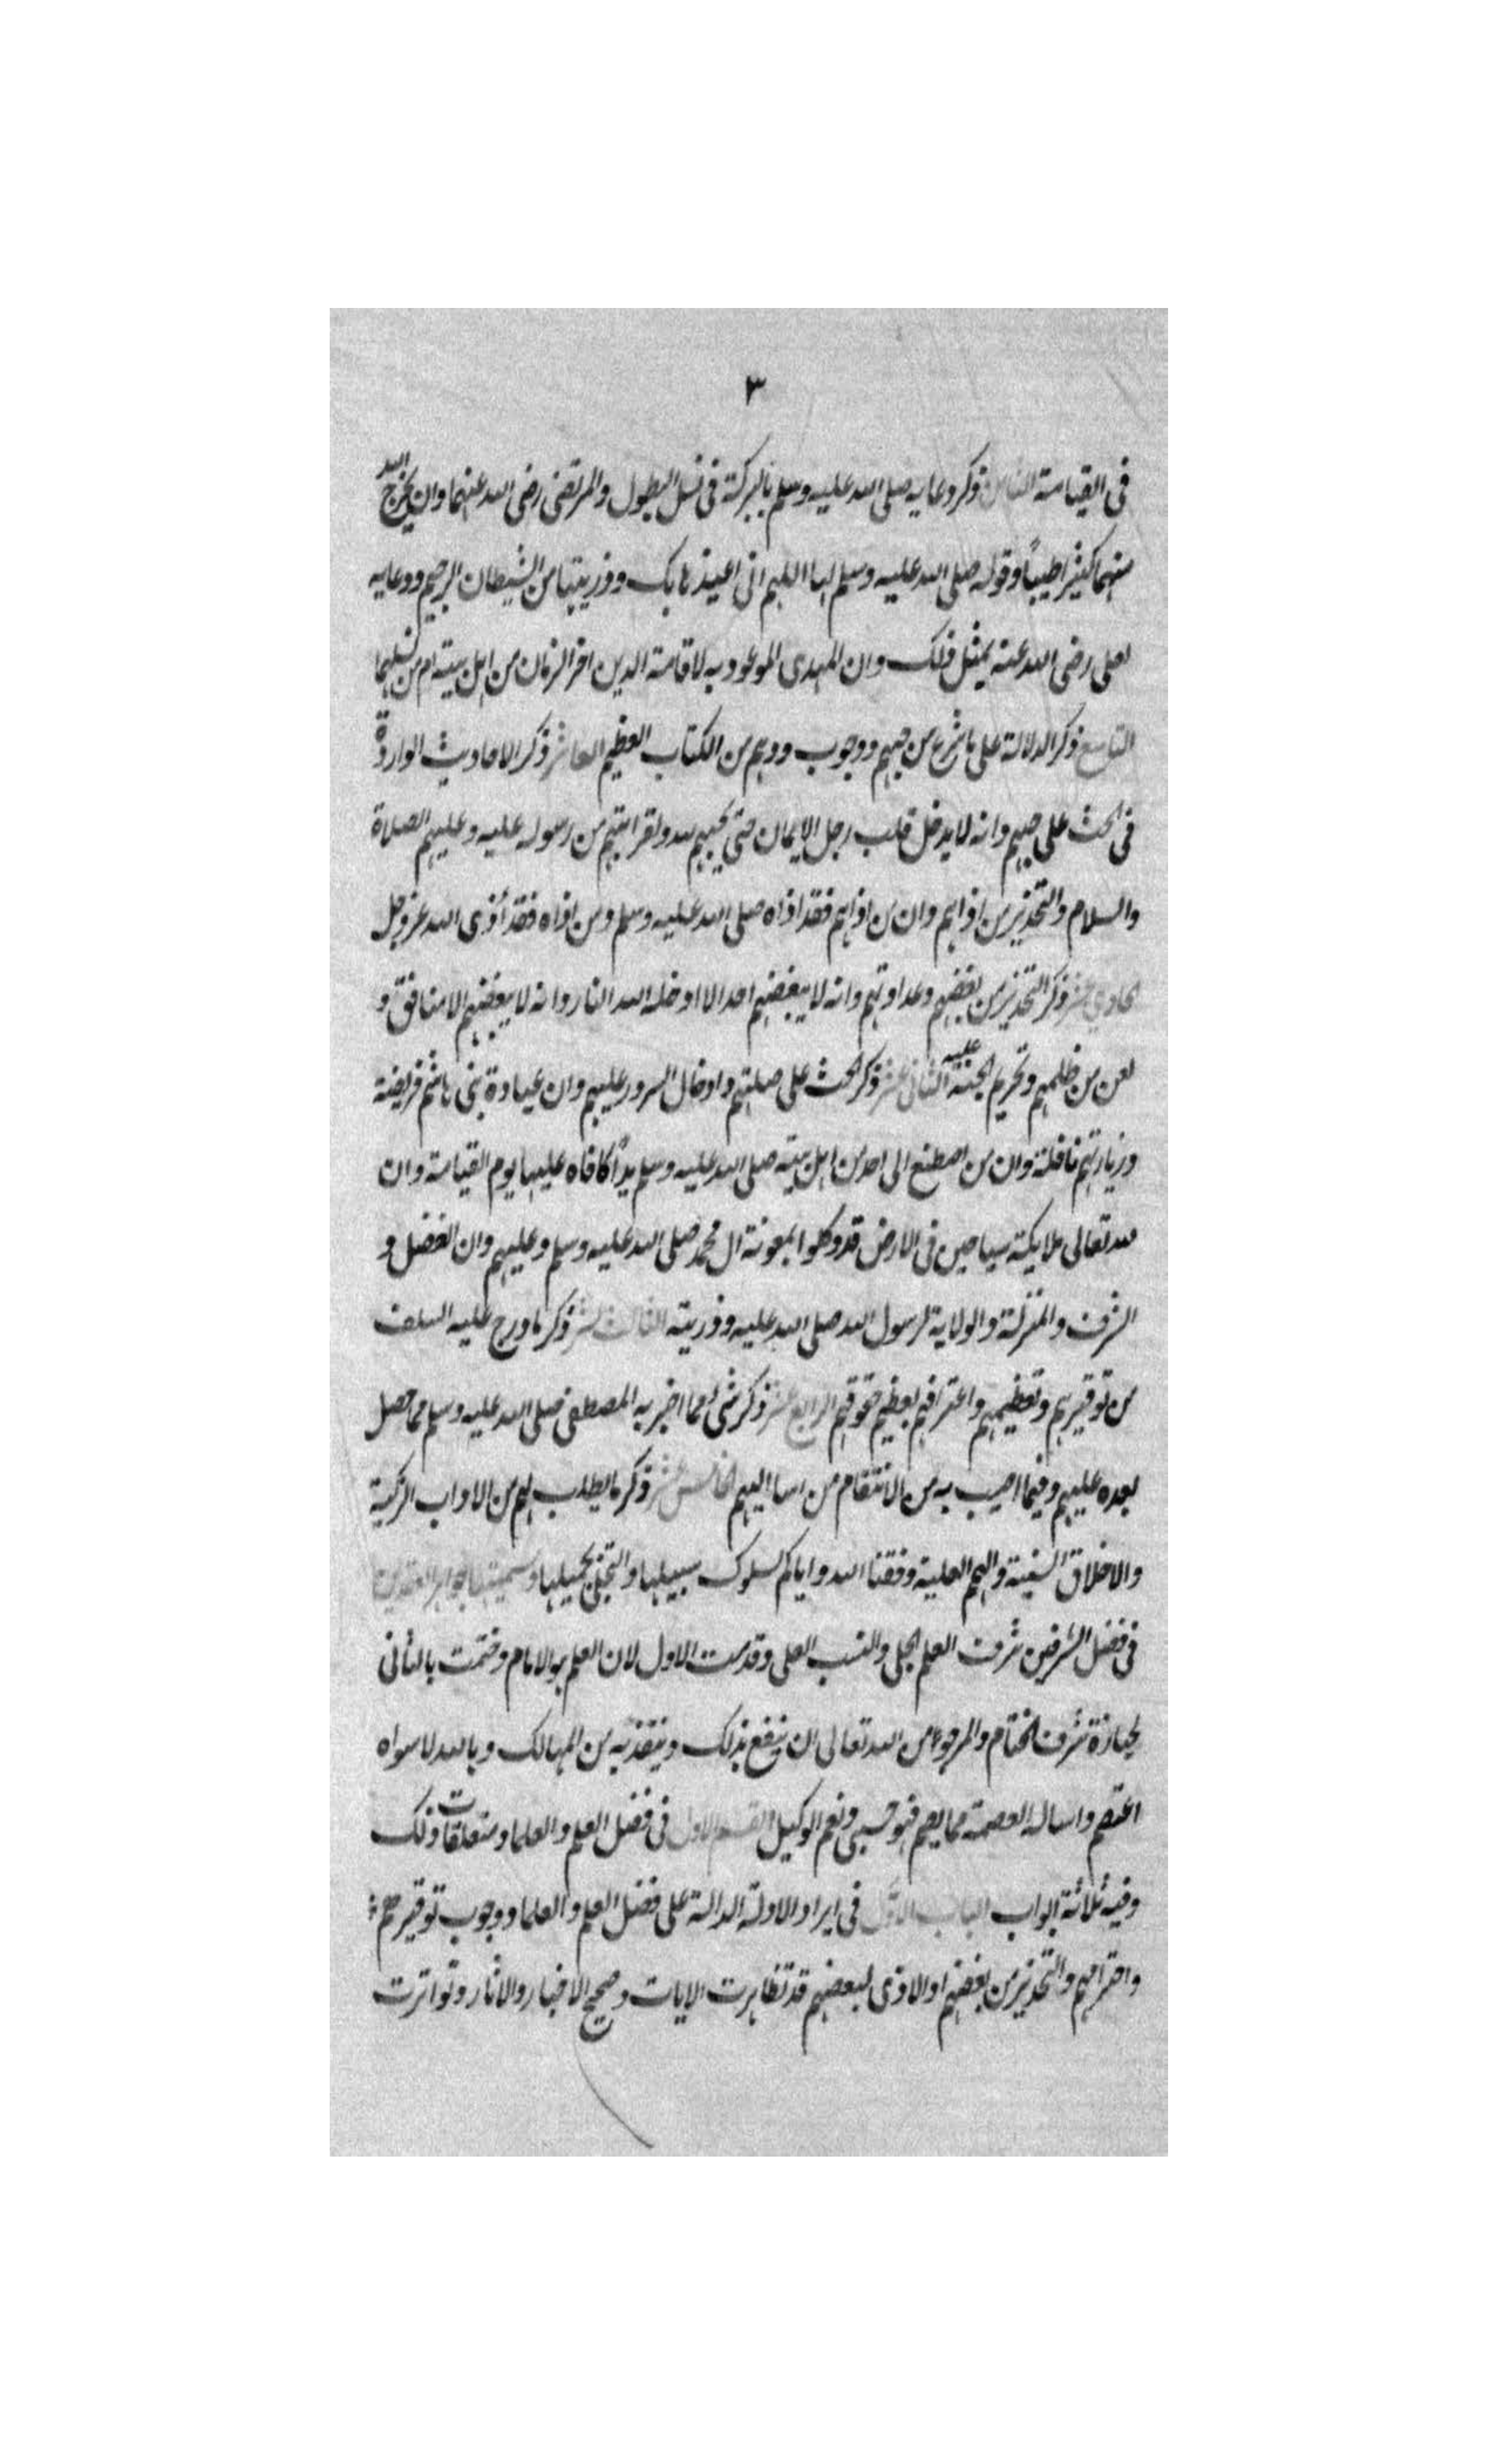 ٣
فى القيامة الثامن ذكر دعايه صلى الله عليه وسلم بالبركة فى نسل البطول والمرتضى رضى الله عنهما وان يخرج الله
منهما كثيرا طيباً وقوله صلى الله عليه وسلم لها اللهم انى اعيذها بك وذريتها من الشيطان الرجيم ودعايه
لعلى رضى الله عنه بمثل ذلك وان المهدى الموعود به لاقامة الدين اخر الزمان من اهل بيته ام من نسلهما
التاسع ذكر الدلالة على ما شرع من حبهم ووجوب ودهم من الكتاب العظيم العاشر ذكر الاحاديث الواردة
فى الحث على حبهم وانه لا يدخل قلب رجل الايمان حتى يحبهم لله ولقرابتهم من رسوله عليه وعليهم الصلاة
والسلام والتحذير من اذاهم وان من اذاهم فقد اذاه صلى الله عليه وسلم ومن اذاه فقد أذى الله عز وجل
الحادي عشر ذكر التحذير من بغضهم وعداوتهم وانه لا يبغضهم احد الا ادخله الله النار وانه لا يبغضهم الا منافق و
لعن من ظلمهم وتحريم الجنة عليه الثانى عشر ذكر الحث على صلتهم وادخال السرور عليهم وان عيادة بنى هاشم فريضة
وزيارتهم نافلة وان من اصطنع الى احد من اهل بيته صلى الله عليه وسلم يداً كافاه عليها يوم القيامة وان
لله تعالى ملايكة سياحين فى الارض قد وكلوا بمعونة ال محمد صلى الله عليه وسلم وعليهم وان الفضل و
الشرف والمنزلة والولاية لرسول الله صلى الله عليه وذريته الثالث عشر ذكر ما درج عليه السلف
من توقيرهم وتعظيمهم واعترافهم بعظيم حقوقهم الرابع عشر ذكر شئ مما اخبر به المصطفى صلى الله عليه وسلم مما حصل
بعده عليهم وفيما اصيب به من الانتقام من اسا اليهم الخامس عشر ذكر ما يطلب لهم من الاداب الزكية
والاخلاق السنية والهمم العلية وفقنا الله واياكم لسلوك سبيلها والتحلى بجميلها وسميتها جواهر العقدين
فى فضل الشرفين شرف العلم الجلى والنسب العلى وقدمت الاول لان العلم هو الامام وختمت بالثانى
لحيازة شرف الختام والمرجو من الله تعالى ان ينفع بذلك وينقذ به من المهالك وبالله لا سواه
اعتصم واساله العصمة مما يصم فهو حسبى ونعم الوكيل القسم الاول فى فضل العلم والعلما ومتعلقات ذلك
وفيه ثلاثة ابواب الباب الاول فى ايراد الادلة الدالة على فضل العلم والعلما ووجوب توقيرهم
واحترامهم والتحذير من بغضهم او الاذى لبعضهم قد تظاهرت الايات وصحيح الاخبار والاثار وتواترت